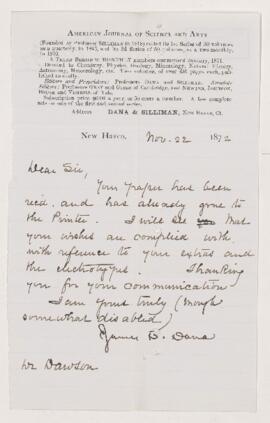 AMERICAN JOURNAL OF SCIENCE AND ARTS
(Founded by Professor SILLIMAN in 1818)
as a quarterly, to 1845, and in 2d Series of 50 volumes, as a two-monthly,
to 1870.
A THIRD SERIES IN MONTHLY NUMBERS commenced January, 1871.
Devoted to Chemistry, Physics, Geology, Mineralogy, Natural History,
Astronomy, Meteorology, etc. Two volumes, of over 450 pages each, published annually.
Editors and Proprietors: Professors DANA and SILLIMAN. Associate
Editors: Professors GRAY and GIBBS of Cambridge, and NEWTON, JOHNSON,
BRUSH and VERRILL of Yale.
Subscription price
Address DANA & SILLIMAN, New Haven, Ct.
New Haven, Nov. 22 1872
Dear Sir,
Your paper has been
recd. and has already gone to
the Printer. I will see that
your wishes are complied with
with reference to your extras and
the electrotypes. Thanking
you for your communication
I am yours truly (though
somewhat disabled)
James D. Dana
Dr Dawson